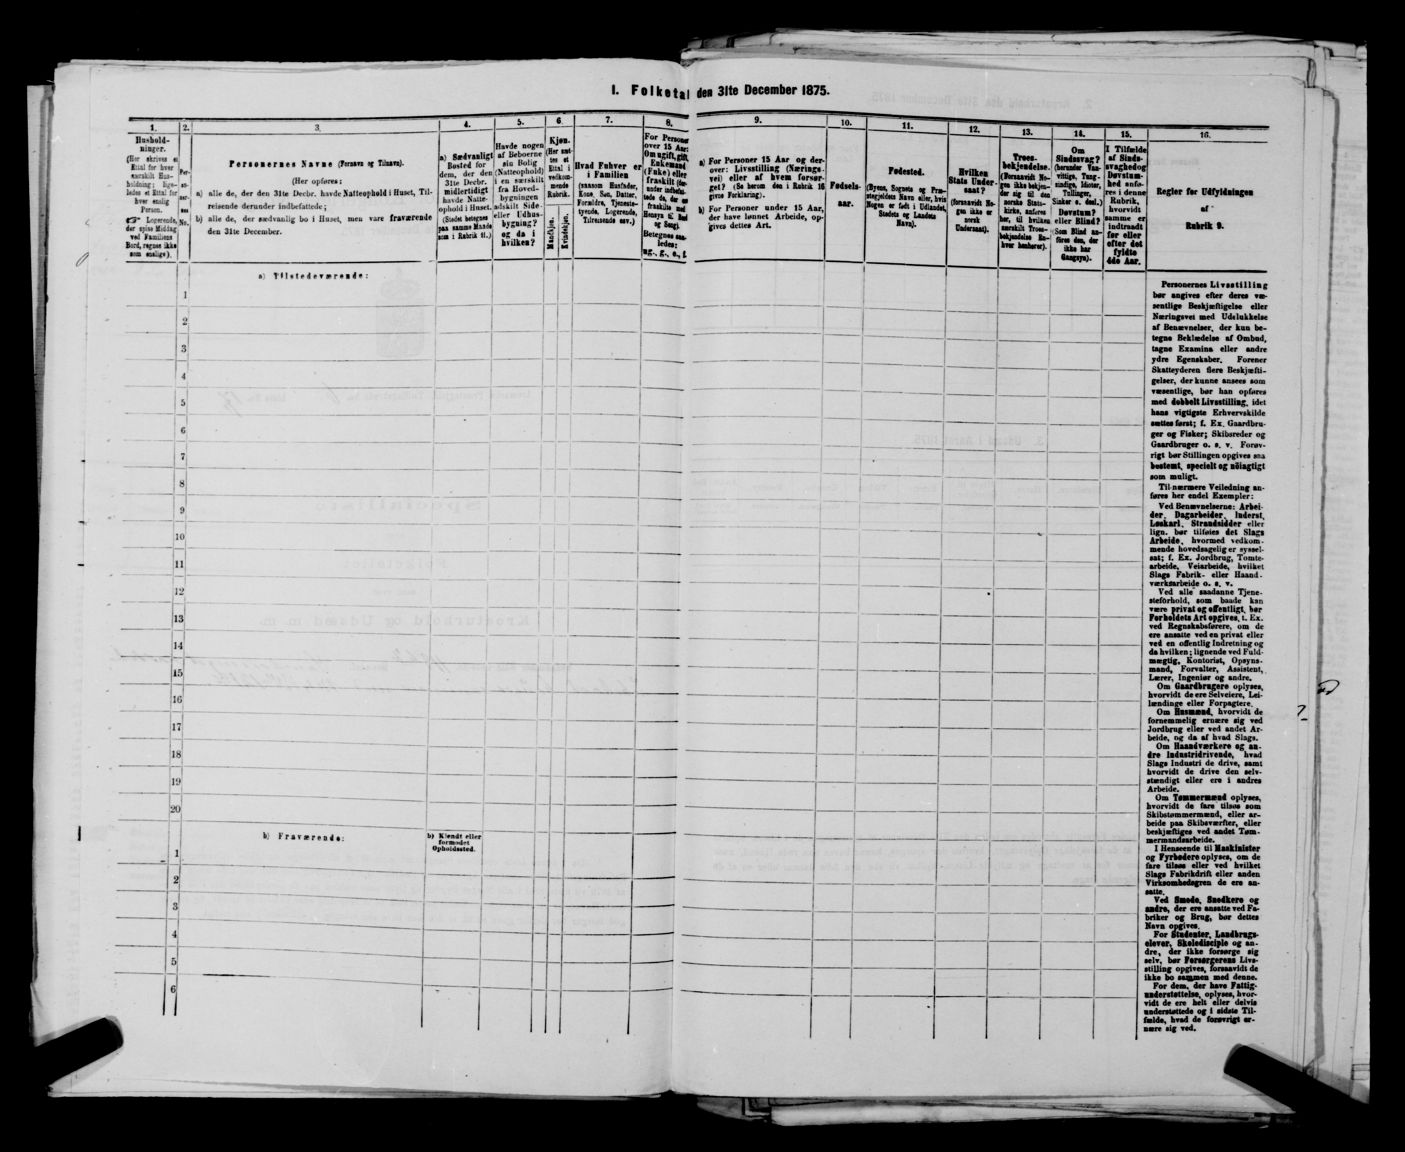 I. Folketal den 31te December 1875.
1.
Hushold-
ninger.
(Her skrives et
Ettal for hver
særskilt Hus-
holdning; lige-
ledes et Ettal for
hver enslig
Person.
Logerende,
der spise Middag
ved Familiens
Bord, regnes ikke
som enslige).
2.
Per-
so-
ner-
nes
No.
3.
Personernes Navne (Fornavn og Tilnavn).
(Her opføres:
a) alle de, der den 31te Decbr. havde Natteophold i Huset, Til-
reisende derunder indbefattede;
b) alle de, der sædvanlig bo i Huset, men vare fraværende
den 31te December.
4.
a) Sædvanligt
Bosted for
dem, der den
31te Decbr.
havde Natte-
ophold i Huset.
(Stedet betegnes
paa samme Maade
som i Rubrik 11.)
5.
Havde nogen
af Beboerne
sin Bolig
(Natteophold)
i en særskilt
fra Hoved-
bygningen
adskilt Side-
eller Udhus-
bygning?
og da i
hvilken?
6.
Kjøn.
(Her sæt-
tes et
Ettal i
vedkom-
mende
Rubrik.
Mandkjøn.
Kvindekjøn.
7.
Hvad Enhver er
i Familien
(saasom Husfader,
Kone, Søn, Datter,
Forældre, Tjeneste-
tyende, Logerende,
Tilreisende osv.)
8.
For Personer
over 15 Aar:
Om ugift, gift,
Enkemand
(Enke) eller
fraskilt (der-
under indbefat-
tede de, der ere
fraskilte med
Hensyn til Bord
og Seng).
Betegnes saa-
ledes:
ug., g., e., f.
9.
a) For Personer 15 Aar og der-
over: Livsstilling (Nærings-
vei) eller af hvem forsør-
get? (Se herom den i Rubrik 16
givne Forklaring).
b) For Personer under 15 Aar,
der have lønnet Arbeide, op-
gives dettes Art.
10.
Fødsels-
aar.
11.
Fødested.
(Byens, Sognets og Præ-
stegjeldets Navn eller, hvis
Nogen er født i Udlandet,
Stedets og Landets
Navn).
12.
Hvilken
Stats Under-
saat?
(forsaavidt No-
gen ikke er
norsk
Undersaat).
13.
Troes-
bekjendelse.
(Forsaavidt No-
gen ikke bekjen-
der sig til den
norske Stats-
kirke, anføres
her, til hvilken
særskilt Troes-
bekjendelse En-
hver henhører).
14.
Om
Sindssvag?
(herunder Van-
vittige, Tung-
sindige, Idioter,
Tullinger,
Sinker o. desl.)
Døvstum?
eller Blind?
(Som Blind an-
føres den, der
ikke har
Gangsyn).
15.
I Tilfælde
af Sinds-
svaghed og
Døvstum-
hed anfø-
res i denne
Rubrik,
hvorvidt
samme er
indtraadt
før eller
efter det
fyldte
4de Aar.
16.
Regler for Udfyldningen
af
Rubrik 9.
a) Tilstedeværende:
1
2
3
4
5
6
7
8
9
10
11
12
13
14
15
16
17
18
19
20
b) Fraværende:
b) Kjendt eller
formodet
Opholdssted.
1
2
3
4
5
6
Personernes Livsstilling
bør angives efter deres væ-
sentlige Beskjæftigelse eller
Næringsvei med Udelukkelse
af Benævnelser, der kun be-
tegne Beklædelse af Ombud,
tagne Examina eller andre
ydre Egenskaber. Forener
Skatteyderen flere Beskjæfti-
gelser, der kunne ansees som
væsentlige, bør han opføres
med dobbelt Livsstilling, idet
hans vigtigste Erhvervskilde
sættes først; f. Ex. Gaardbru-
ger og Fisker; Skibsreder og
Gaardbruger o. s. v. Forøv-
rigt bør Stillingen opgives saa
bestemt, specielt og nøiagtigt
som muligt.
Til nærmere Veiledning an-
føres her endel Exempler:
Ved Benævnelserne: Arbei-
der, Dagarbeider, Inderst,
Løskarl, Strandsidder eller
lign. bør tilføies det Slags
Arbeide, hvormed vedkom-
mende hovedsagelig er syssel-
sat; f. Ex. Jordbrug, Tomte-
arbeide, Veiarbeide, hvilket
Slags Fabrik- eller Haand-
værksarbeide o. s. v.
Ved alle saadanne Tjene-
steforhold, som baade kan
være privat og offentligt, bør
Forholdets Art opgives, t. Ex.
ved Regnskabsførere, om de
ere ansatte ved en privat eller
ved en offentlig Indretning og
da hvilken; lignende ved Fuld-
mægtig, Kontorist, Opsyns-
mand, Forvalter, Assistent,
Lærer, Ingeniør og andre.
Om Gaardbrugere oplyses,
hvorvidt de ere Selveiere, Lei-
lændinge eller Forpagtere.
Om Husmænd, hvorvidt de
fornemmelig ernære sig ved
Jordbrug eller ved andet Ar-
beide, og da af hvad Slags.
Om Haandværkere og an-
dre Industridrivende, hvad
Slags Industri de drive, samt
hvorvidt de drive den selv-
stændigt eller ere i andres
Arbeide.
Om Tømmermænd oplyses,
hvorvidt de fare tilsøs som
Skibstømmermænd, eller ar-
beide paa Skibsværfter, eller
beskjæftiges ved andet Tøm-
mermandsarbeide.
I Henseende til Maskinister
og Fyrbødere oplyses, om de
fare tilsøs eller ved hvilket
Slags Fabrikdrift eller anden
Virksomhedsgren de ere an-
satte.
Ved Smede, Snedkere og
andre, der ere ansatte ved Fa-
briker og Brug, bør dettes
Navn opgives.
For Studenter, Landbrugs-
elever, Skoledisciple og an-
dre, der ikke forsørge sig
selv, bør Forsørgerens Livs-
stilling opgives, forsaavidt de
ikke bo sammen med denne.
For dem, der have Fattig-
understøttelse, oplyses, hvor-
vidt de ere helt eller delvis
understøttede og i sidste Til-
fælde, hvad de forøvrigt er-
nære sig ved.